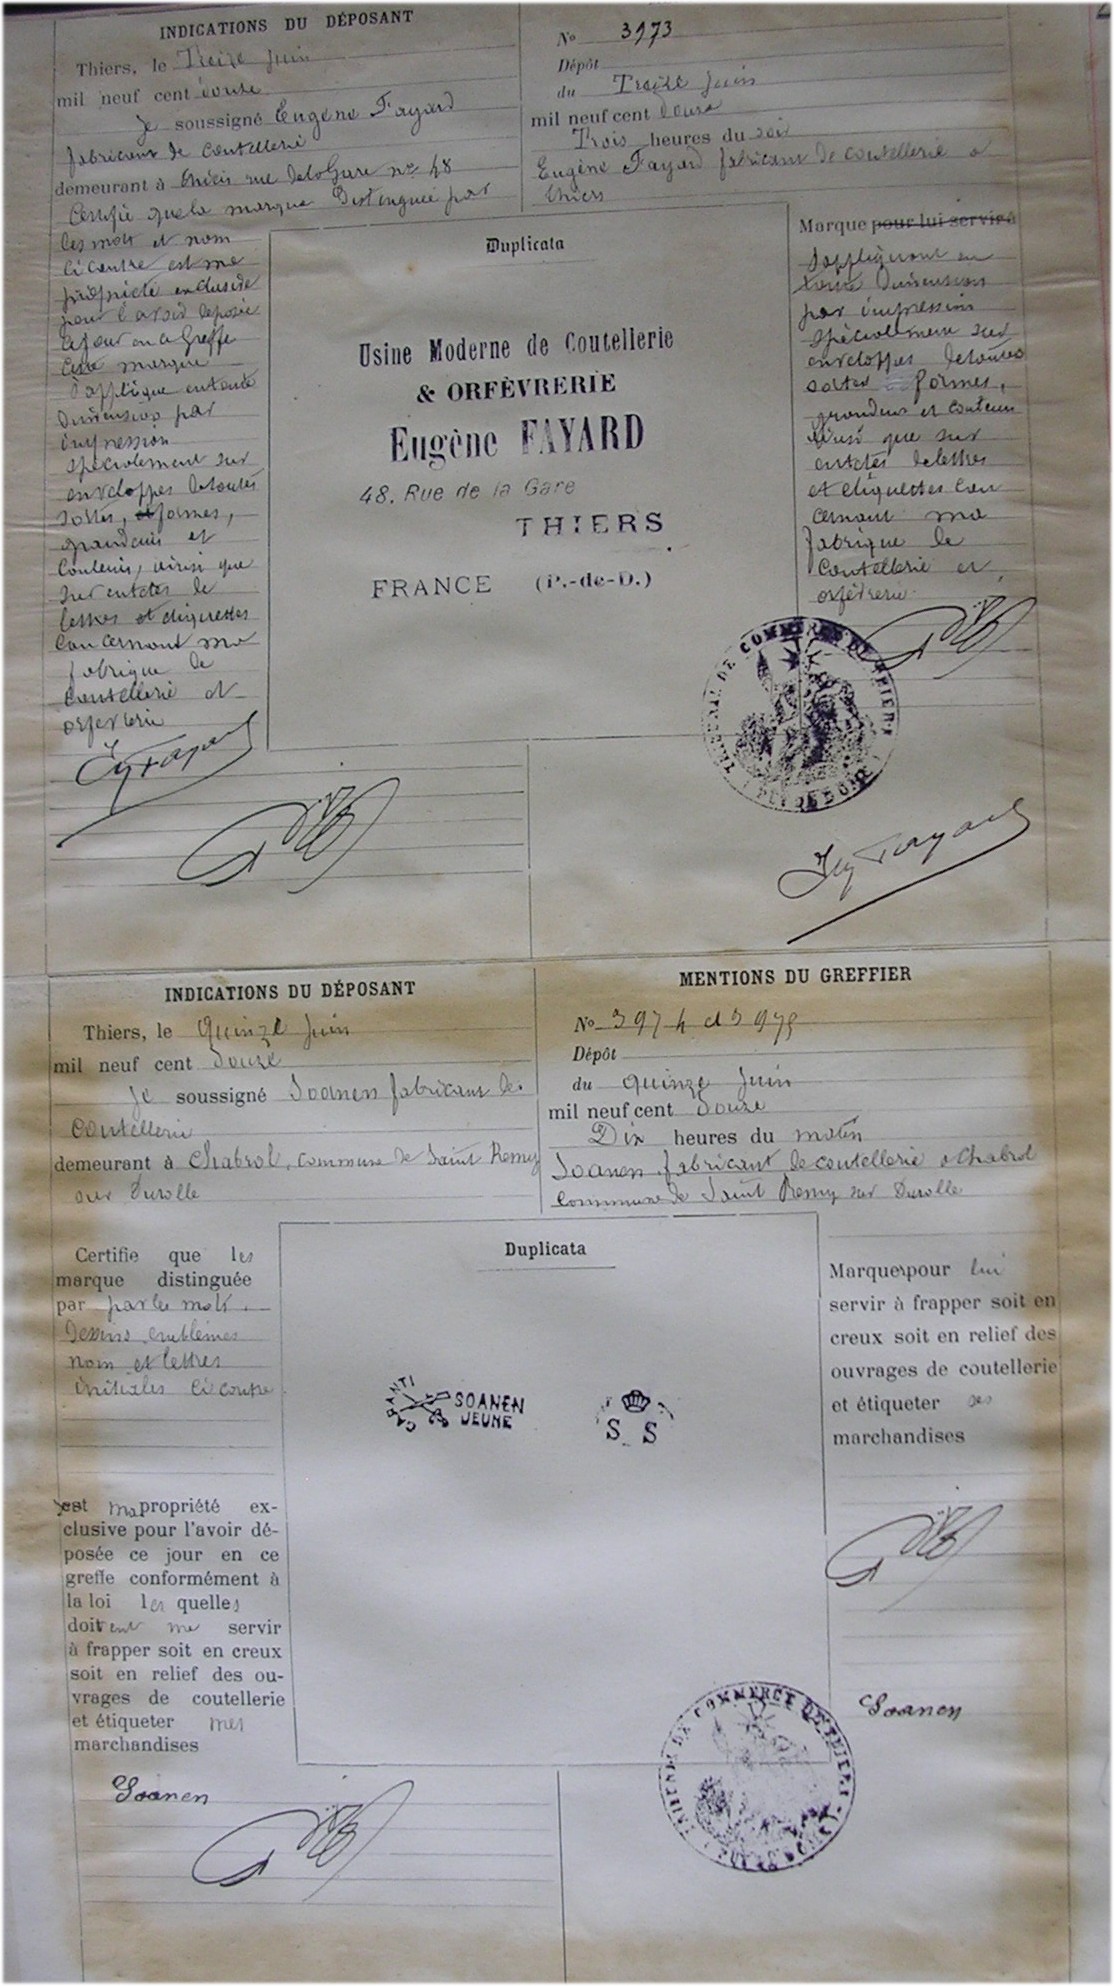 INDICATIONS DU DÉPOSANT
Thiers, le Treize Juin
mil neuf cent douze
Je soussigné Eugène Fayard
fabricant de coutellerie
demeurant à Thiers rue de la Gare no 48
Certifie que la marque Distinguée par
les mots et nom
ci contre est ma
propriété exclusive
pour l'avoir déposée
ce jour en ce Greffe
marque
s'applique en toute
Dimension par
impression
spécialement sur
enveloppes de toutes
sortes, formes,
grandeurs et
couleurs, ainsi que
sur entetes de
lettres et étiquettes
concernant ma
fabrique de
coutellerie et
orfevrerie
Eug Fayard
No 3973
Dépôt
du Treize Juin
mil neuf cent douze
Trois heures du soir
Eugène Fayard fabricant de coutellerie a
Thiers
Duplicata
Usine Moderne de Coutellerie
& ORFÈVRERIE
Eugène FAYARD
48, Rue de la Gare
THIERS
FRANCE (P.-de-D.)
Marque pour lui servir à
s'appliquant en
toute Dimension
par impression
spécialement sur
enveloppes de toutes
sortes formes,
grandeur et couleurs
ainsi que sur
entetes de lettres
et etiquettes con
cernant ma
fabrique de
coutellerie et
orfèvrerie
TRIBUNAL DE COMMERCE DE THIERS
(PUY DE DOME)
Eug Fayard
INDICATIONS DU DÉPOSANT
Thiers, le Quinze Juin
mil neuf cent Douze
Je soussigné Soanen fabricant de
coutellerie
demeurant à Chabrol, commune de Saint Remy
sur Durolle
MENTIONS DU GREFFIER
No 3974 et 3975
Dépôt
du quinze Juin
mil neuf cent Douze
Dix heures du matin
Soanen fabricant de coutellerie a Chabrol
commune de Saint Remy sur Durolle
Certifie que les
marque distinguée
par par les mots
Dessins emblèmes
nom et lettres
initiales ci contre
est ma propriété ex-
clusive pour l'avoir dé-
posée ce jour en ce
greffe conformément à
la loi les quelles
doivent me servir
à frapper soit en creux
soit en relief des ou-
vrages de coutellerie
et étiqueter mes
marchandises
Soanen
Duplicata
CARANTI
SOANEN
JEUNE
S S
Marques pour lui
servir à frapper soit en
creux soit en relief des
ouvrages de coutellerie
et étiqueter ses
marchandises
Soanen
TRIBUNAL DE COMMERCE DE THIERS